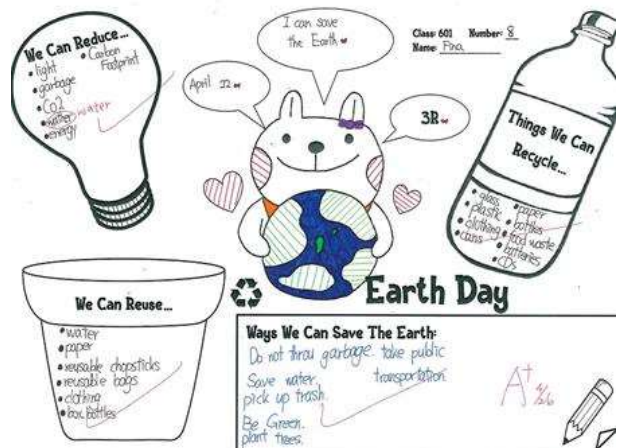 We Can Reduce...
light
Carbon
Footprint
garbage
CO2
water water
energy
I can save
the Earth
April 22
3R
Class: 601 Number: 8
Name: Fina
Things We Can
Recycle...
glass
plastic
clothing
cans
paper
bottles
food waste
batteries
CDs
We Can Reuse...
water
paper
reusable chopsticks
reusable bags
clothing
box, bottles
Earth Day
Ways We Can Save The Earth:
Do not throu garbage. take public
transportation.
Save water.
pick up trash.
Be Green.
plant trees.
A+ 4/26